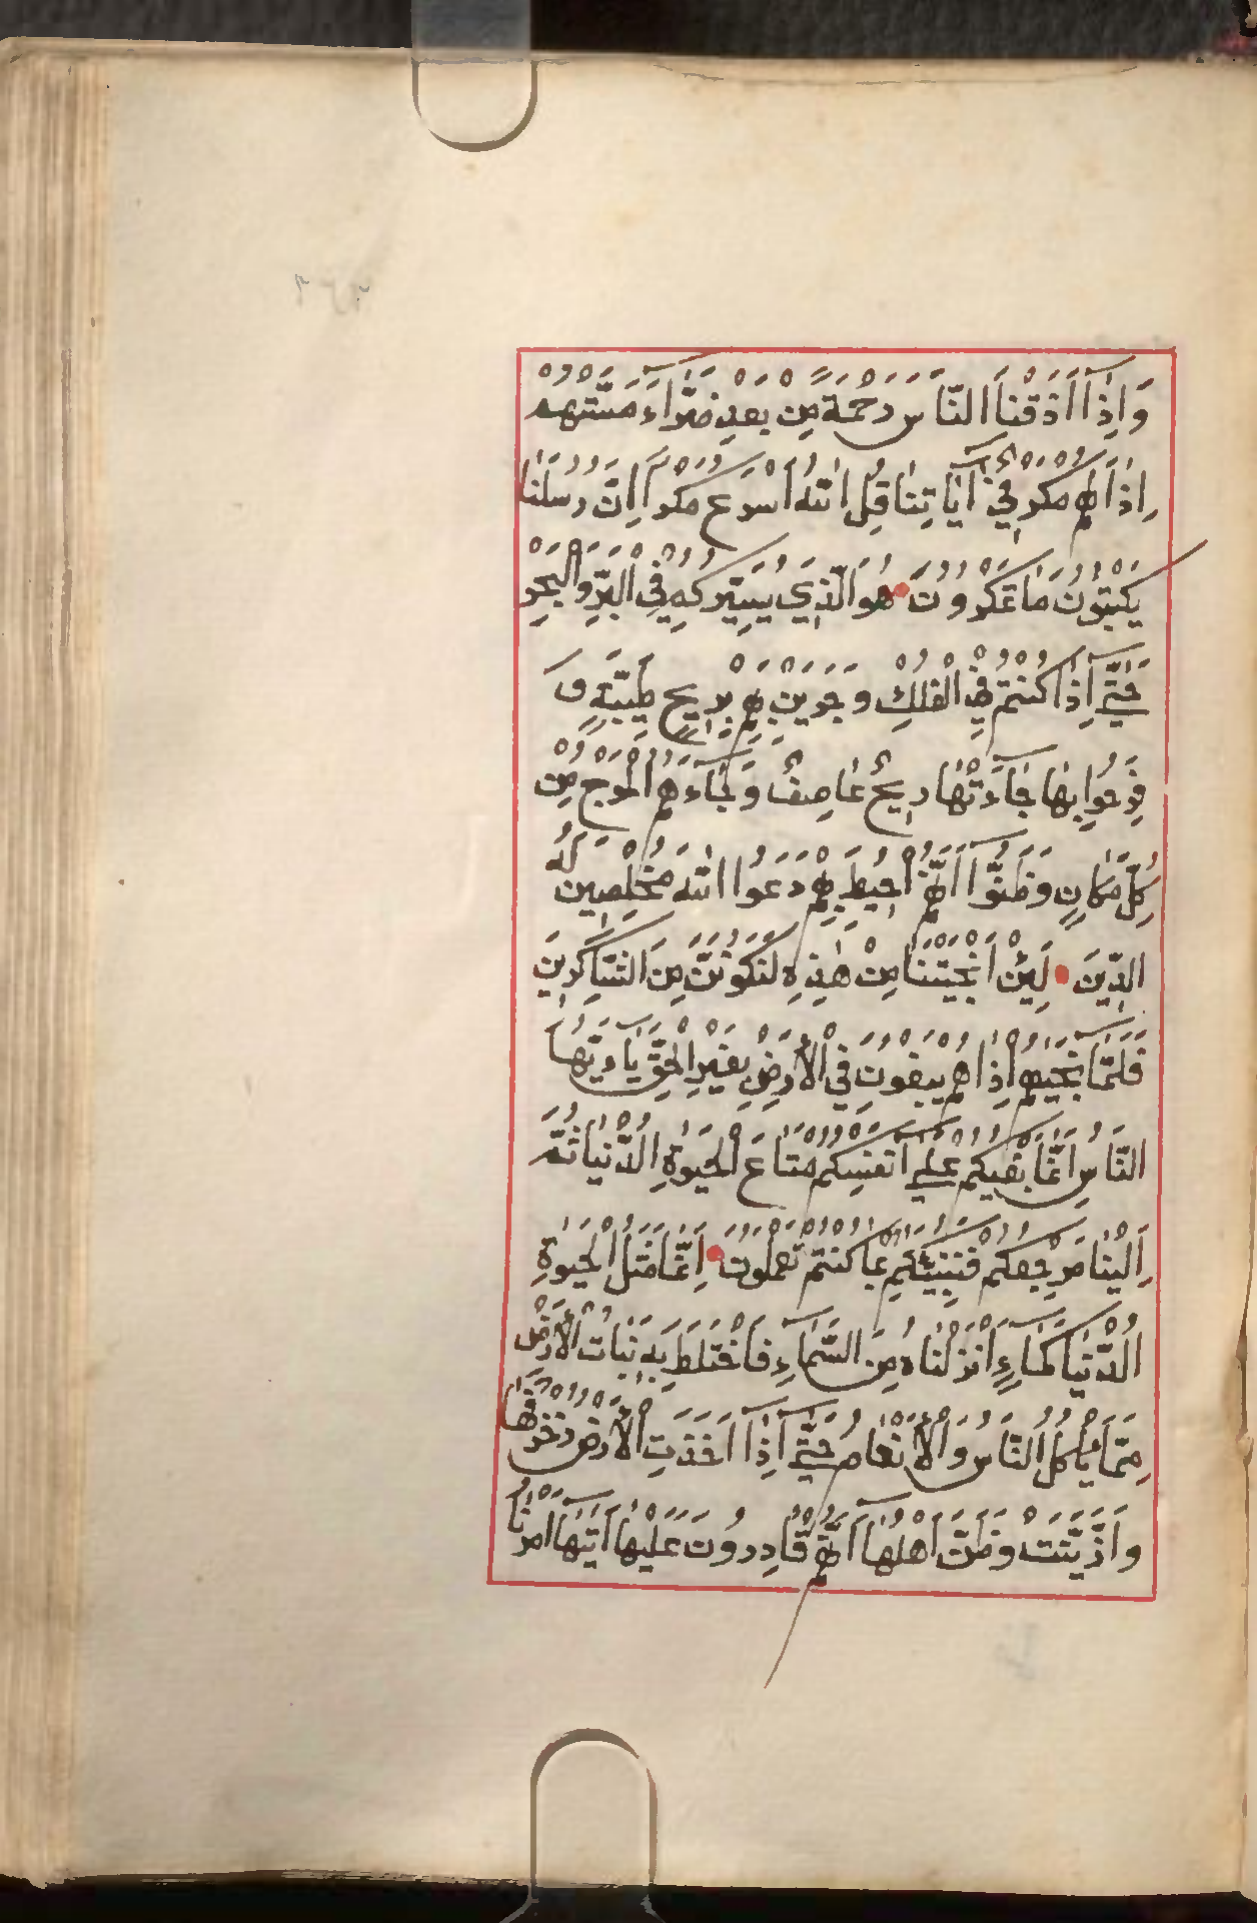 وَاِذَا اَذَقْنَا النَّاسَ رَحْمَةً مِنْ بَعْدِ ضَرَّاءَ مَسَّتْهُمْ
اِذَا لَهُمْ مَكْرٌ فِيْ اٰيَاتِنَا قُلِ اللّٰهُ اَسْرَعُ مَكْرًا اِنَّ رُسُلَنَا
يَكْتُبُوْنَ مَا تَمْكُرُوْنَ هُوَ الَّذِيْ يُسَيِّرُكُمْ فِي الْبَرِّ وَالْبَحْرِ
حَتّٰى اِذَا كُنْتُمْ فِي الْفُلْكِ وَجَرَيْنَ بِهِمْ بِرِيْحٍ طَيِّبَةٍ وَ
فَرِحُوْا بِهَا جَاءَتْهَا رِيْحٌ عَاصِفٌ وَجَاءَهُمُ الْمَوْجُ مِنْ
كُلِّ مَكَانٍ وَظَنُّوْا اَنَّهُمْ اُحِيْطَ بِهِمْ دَعَوُا اللّٰهَ مُخْلِصِيْنَ لَهُ
الدِّيْنَ لَئِنْ اَنْجَيْتَنَا مِنْ هٰذِهٖ لَنَكُوْنَنَّ مِنَ الشَّاكِرِيْنَ
فَلَمَّا اَنْجٰيهُمْ اِذَا هُمْ يَبْغُوْنَ فِي الْاَرْضِ بِغَيْرِ الْحَقِّ يَا اَيُّهَا
النَّاسُ اِنَّمَا بَغْيُكُمْ عَلٰى اَنْفُسِكُمْ مَتَاعَ الْحَيٰوةِ الدُّنْيَا ثُمَّ
اِلَيْنَا مَرْجِعُكُمْ فَنُنَبِّئُكُمْ بِمَا كُنْتُمْ تَعْمَلُوْنَ اِنَّمَا مَثَلُ الْحَيٰوةِ
الدُّنْيَا كَمَاءٍ اَنْزَلْنَاهُ مِنَ السَّمَاءِ فَاخْتَلَطَ بِهٖ نَبَاتُ الْاَرْضِ
مِمَّا يَأْكُلُ النَّاسُ وَالْاَنْعَامُ حَتّٰى اِذَا اَخَذَتِ الْاَرْضُ زُخْرُفَهَا
وَازَّيَّنَتْ وَظَنَّ اَهْلُهَا اَنَّهُمْ قَادِرُوْنَ عَلَيْهَا اَتٰيهَا اَمْرُنَا